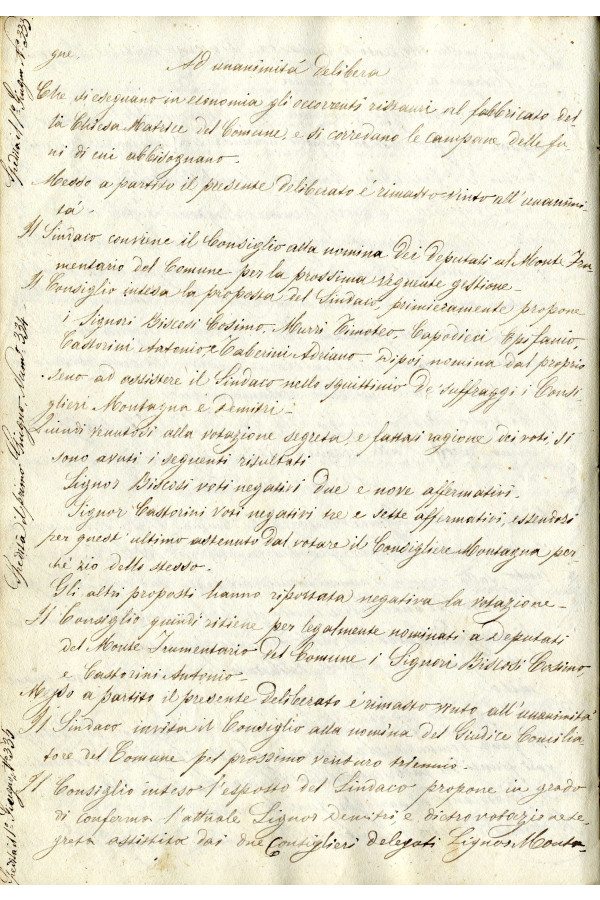 gne.
Ad unanimitá delibera
Che si eseguano in economia gli occorrenti ristauri al fabbricato del
la Chiesa Matrice del Comune, e si corredano le campane delle fu
ni di cui abbisognano.
Messo a partito il presente deliberato é rimasto vinto all'unanimi
tá.
Il Sindaco conviene il Consiglio alla nomina dei deputati al Monte Fru
mentario del Comune per la prossima seguente gestione.
Il Consiglio intesa la proposta del Sindaco, primieramente propone
i Signori Biscosi Cosimo, Murri Timoteo, Capodieci Epifanio,
Castorini Antonio, e Taberini Adriano. Dipoi nomina dal proprio
seno ad assistere il Sindaco nello squittinio de' suffraggi i Consi
glieri Montagna e Demitri.
Quindi venutosi alla votazione segreta, e fattasi ragione dei voti, si
sono avuti i seguenti risultati
Signor Biscosi voti negativi due e nove affermativi.
Signor Castorini voti negativi tre e sette affermativi, essendosi
per quest'ultimo astenuto dal votare il Consigliere Montagna per
ché zio dello stesso.
Gli altri proposti hanno riportata negativa la votazione.
Il Consiglio quindi ritiene per legalmente nominati a Deputati
del Monte Frumentario del Comune i Signori Biscosi Cosimo,
e Castorini Antonio.
Messo a partito il presente deliberato é rimasto vinto all'unanimitá
Il Sindaco invita il Consiglio alla nomina del Giudice Concilia
tore del Comune pel prossimo venturo triennio.
Il Consiglio inteso l'esposto del Sindaco propone in grado
di conferma l'attuale Signor Demitri, e dietro votazione se
greta assistita dai due Consiglieri delegati Signor Monta-
Spedita il 1º Giugno Nº 333
Spedita il primo Giugno Num.º 334
Spedita il 1º Giugno, Nº 335